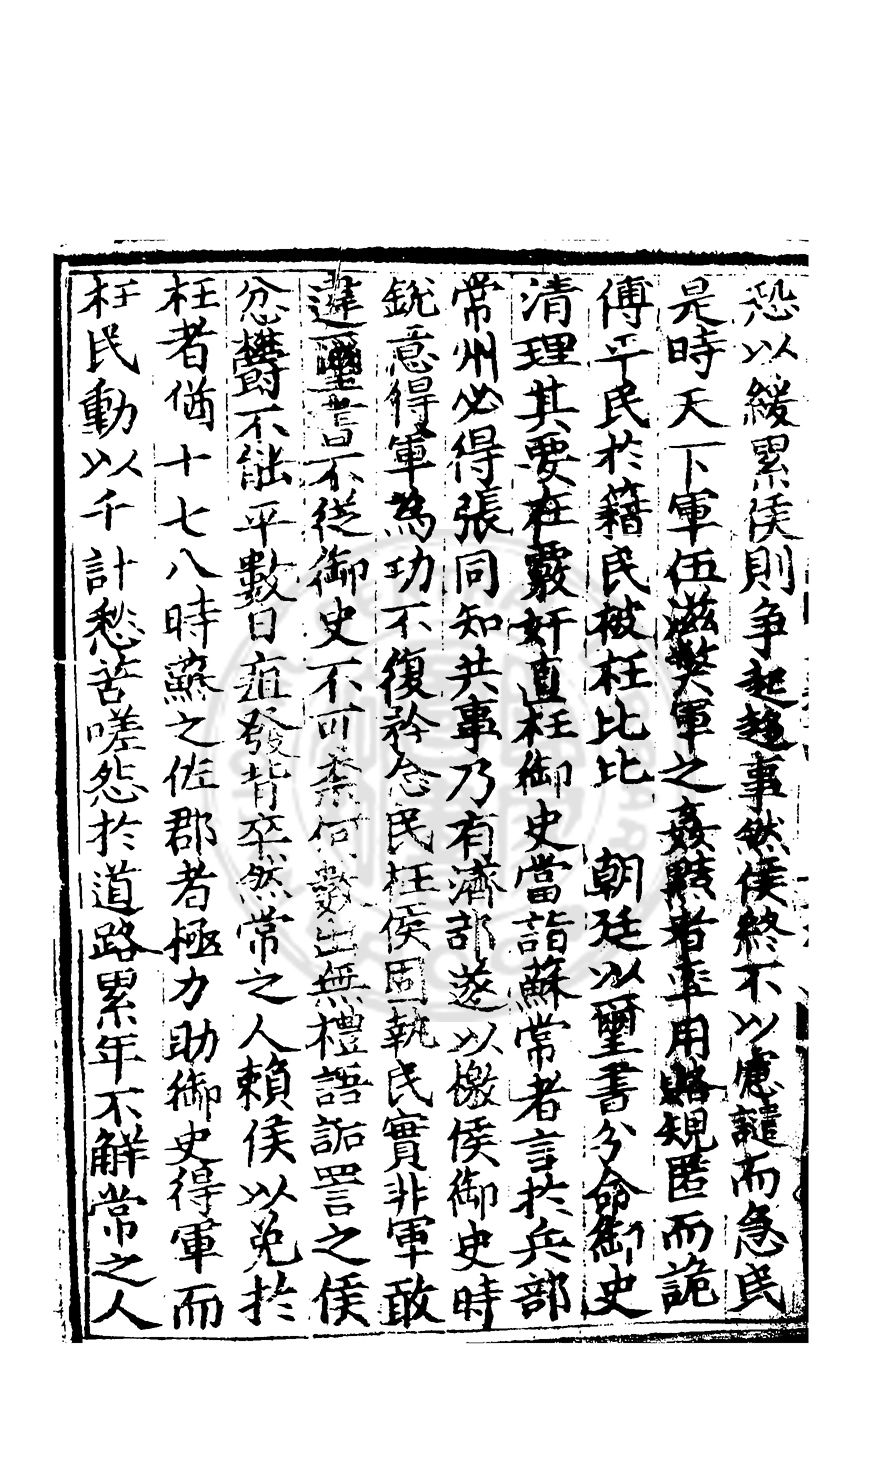 恐以緩累侯則争起趨事然侯終不以慮譴而急民
是時天下軍伍滋弊軍之姦黠者率用賂規匿而詭
傅平民於籍民被枉比比　朝廷以璽書分命御史
清理其要在覈奸直枉御史當詣蘇常者言於兵部
常州必得張同知共事乃有濟部遂以檄侯御史時
銳意得軍為功不復矜念民枉侯固執民實非軍敢
違璽書不從御史不可柰何數出無禮語詬詈之侯
忿欝不能平數日疽發背卒然常之人賴侯以免於
枉者猶十七八時蘇之佐郡者極力助御史得軍而
枉民動以千計愁苦嗟怨於道路累年不解常之人